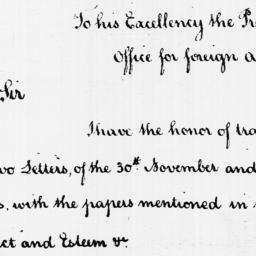 To his Excellency the Pr
Office for foreign a
Sir
I have the honor of tra
wo Letters, of the 30th November and
s. with the papers mentioned in
ct and Esteem &c.